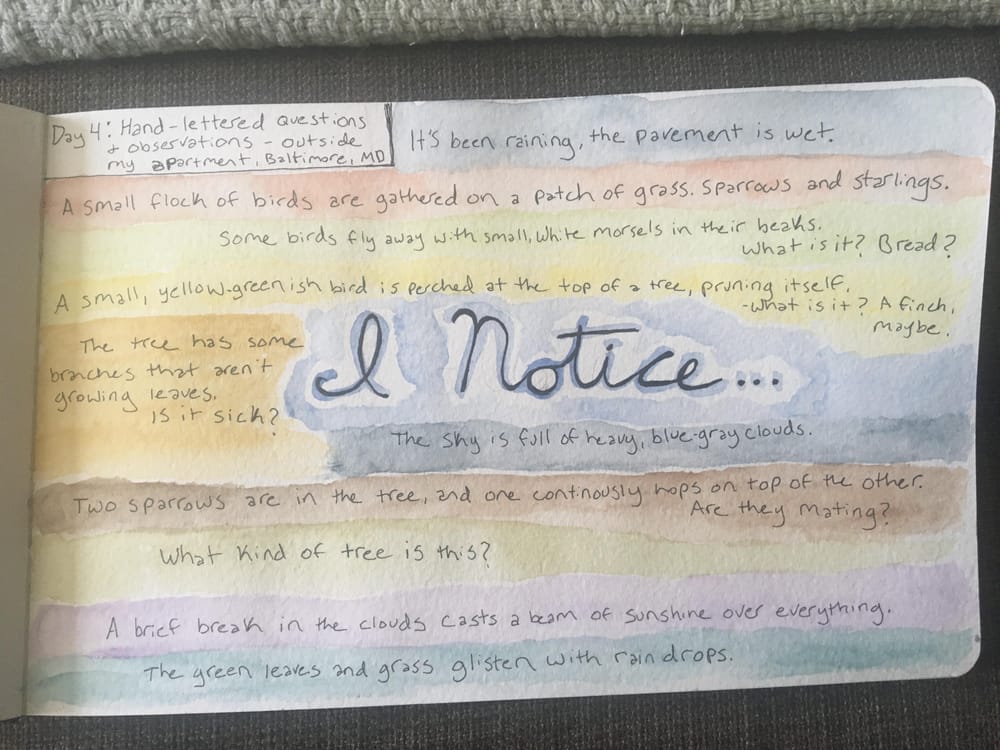 Day 4: Hand-lettered questions
+ observations - outside
my apartment, Baltimore, MD
It's been raining, the pavement is wet.
A small flock of birds are gathered on a patch of grass. Sparrows and starlings.
Some birds fly away with small, white morsels in their beaks.
What is it? Bread?
A small, yellow-greenish bird is perched at the top of a tree, pruning itself.
-What is it? A finch,
maybe.
The tree has some
branches that aren't
growing leaves.
Is it sick?
I Notice...
The sky is full of heavy, blue-gray clouds.
Two sparrows are in the tree, and one continously hops on top of the other.
Are they mating?
What kind of tree is this?
A brief break in the clouds casts a beam of sunshine over everything.
The green leaves and grass glisten with rain drops.